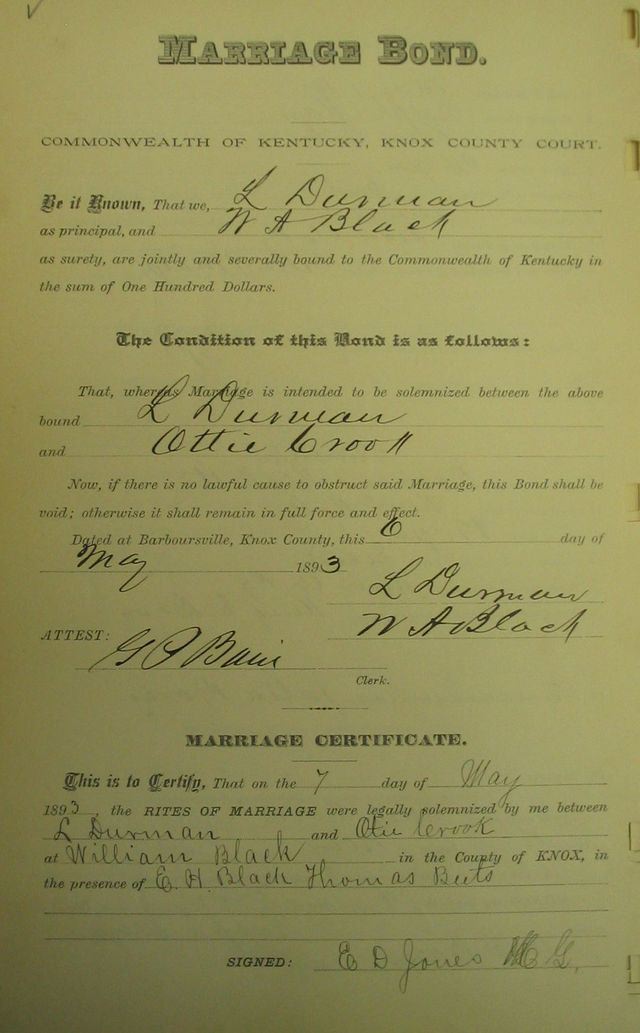 MARRIAGE BOND.
COMMONWEALTH OF KENTUCKY, KNOX COUNTY COURT.
Be it Known, That we, L Durman
as principal, and W A Black
as surety, are jointly and severally bound to the Commonwealth of Kentucky in
the sum of One Hundred Dollars.
The Condition of this Bond is as follows:
That, whereas Marriage is intended to be solemnized between the above
bound L Durman
and Ottie Crook
Now, if there is no lawful cause to obstruct said Marriage, this Bond shall be
void; otherwise it shall remain in full force and effect.
Dated at Barboursville, Knox County, this 6 day of
May 1893
L Durman
W A Black
ATTEST:
G P
Clerk.
MARRIAGE CERTIFICATE.
This is to Certify, That on the 7 day of May
1893, the RITES OF MARRIAGE were legally solemnized by me between
L Durman and Otie Crook
at William Black in the County of KNOX, in
the presence of E. H. Black Thomas Buts
SIGNED: E D Jones M G,